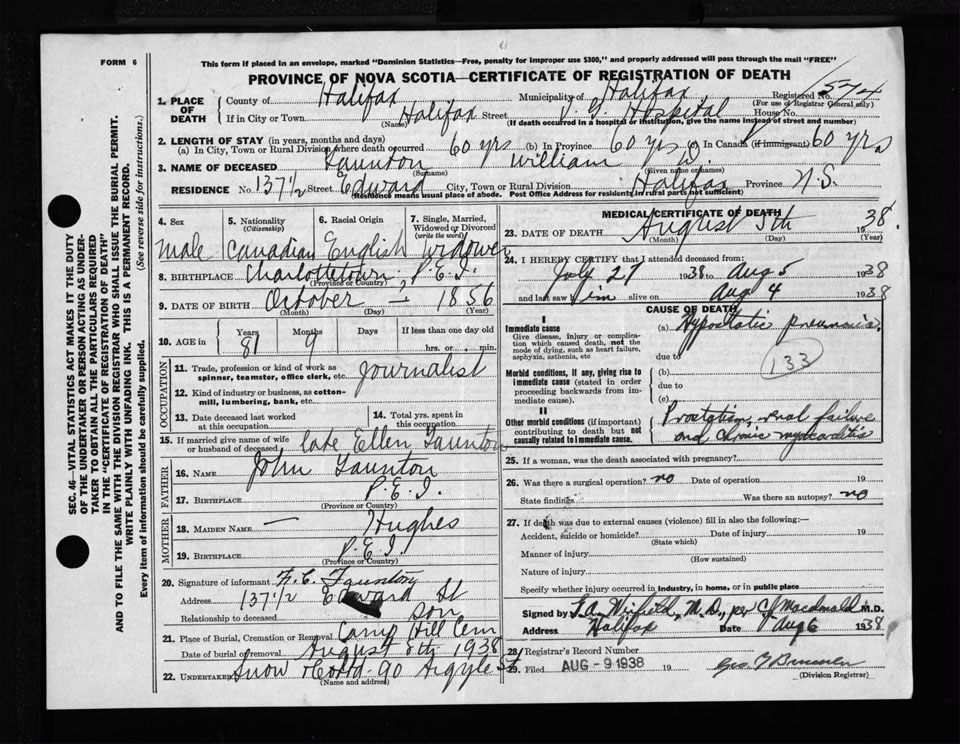 FORM 6
This form if placed in an envelope, marked "Dominion Statistics—Free, penalty for improper use $300," and properly addressed will pass through the mail "FREE"
PROVINCE OF NOVA SCOTIA—CERTIFICATE OF REGISTRATION OF DEATH
1. PLACE OF DEATH
County of Halifax Municipality of Halifax Registered No. 574
(For use of Registrar General only)
If in City or Town Halifax Street V. G. Hospital House No.
(Name) (If death occurred in a hospital or institution, give the name instead of street and number)
2. LENGTH OF STAY (in years, months and days)
(a) In City, Town or Rural Division where death occurred 60 yrs (b) In Province 60 yrs (c) In Canada (if immigrant) 60 yrs
3. NAME OF DECEASED Taunton William D.
(Surname) (Given name or names)
RESIDENCE No. 137½ Street Edward City, Town or Rural Division Halifax Province N.S.
(Residence means usual place of abode. Post Office Address for residents in rural parts not sufficient)
SEC. 46—VITAL STATISTICS ACT MAKES IT THE DUTY
OF THE UNDERTAKER OR PERSON ACTING AS UNDER-
TAKER TO OBTAIN ALL THE PARTICULARS REQUIRED
IN THE "CERTIFICATE OF REGISTRATION OF DEATH"
AND TO FILE THE SAME WITH THE DIVISION REGISTRAR WHO SHALL ISSUE THE BURIAL PERMIT.
WRITE PLAINLY WITH UNFADING INK. THIS IS A PERMANENT RECORD.
Every item of information should be carefully supplied. (See reverse side for instructions.)
4. Sex 5. Nationality (Citizenship) 6. Racial Origin 7. Single, Married, Widowed or Divorced (write the word)
male Canadian English widower
8. BIRTHPLACE Charlottetown P.E.I.
(Province or Country)
9. DATE OF BIRTH October ? 1856
(Month) (Day) (Year)
10. AGE in Years Months Days If less than one day old
81 9 hrs. or min.
OCCUPATION
11. Trade, profession or kind of work as spinner, teamster, office clerk, etc. Journalist
12. Kind of industry or business, as cotton-mill, lumbering, bank, etc.
13. Date deceased last worked at this occupation
14. Total yrs. spent in this occupation
15. If married give name of wife or husband of deceased late Ellen Taunton
FATHER
16. NAME John Taunton
17. BIRTHPLACE P.E.I.
(Province or Country)
MOTHER
18. MAIDEN NAME — Hughes
19. BIRTHPLACE P.E.I.
(Province or Country)
20. Signature of informant Taunton
Address 137 1/2 Edward St
Relationship to deceased son
21. Place of Burial, Cremation or Removal Camp Hill Cem
Date of burial or removal August 8th 1938
22. UNDERTAKER Snow & Co Ltd 90 Argyle St
(Name and address)
MEDICAL CERTIFICATE OF DEATH
23. DATE OF DEATH August 5th 1938
(Month) (Day) (Year)
24. I HEREBY CERTIFY that I attended deceased from:
July 27 1938 to Aug 5 1938
and last saw him alive on Aug 4 1938
CAUSE OF DEATH
I
Immediate cause
Give disease, injury or complication which caused death, not the mode of dying, such as heart failure, asphyxia, asthenia, etc
(a) Hypostatic pneumonia.
due to
133
Morbid conditions, if any, giving rise to immediate cause (stated in order proceeding backwards from immediate cause).
(b)
due to
(c)
II
Other morbid conditions (if important) contributing to death but not causally related to immediate cause.
renal failure
and chronic myocarditis
25. If a woman, was the death associated with pregnancy?
26. Was there a surgical operation? no Date of operation 19
State findings Was there an autopsy? no
27. If death was due to external causes (violence) fill in also the following:—
Accident, suicide or homicide? Date of injury 19
(State which)
Manner of injury
(How sustained)
Nature of injury
Specify whether injury occurred in industry, in home, or in public place
Signed by M.D., per C J Macdonald M.D.
Address Halifax Date Aug 6 1938
28. Registrar's Record Number
Filed AUG - 9 1938 19
(Division Registrar)